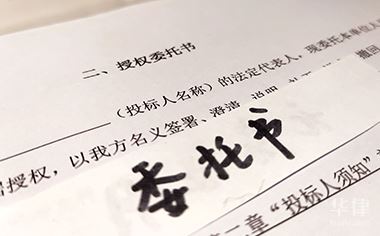 二、授权委托书
（投标人名称）的法定代表人，现委托本单位人
授权，以我方名义签署、澄清、说明、补正、 撤回
委托书
章“投标人须知”
华律